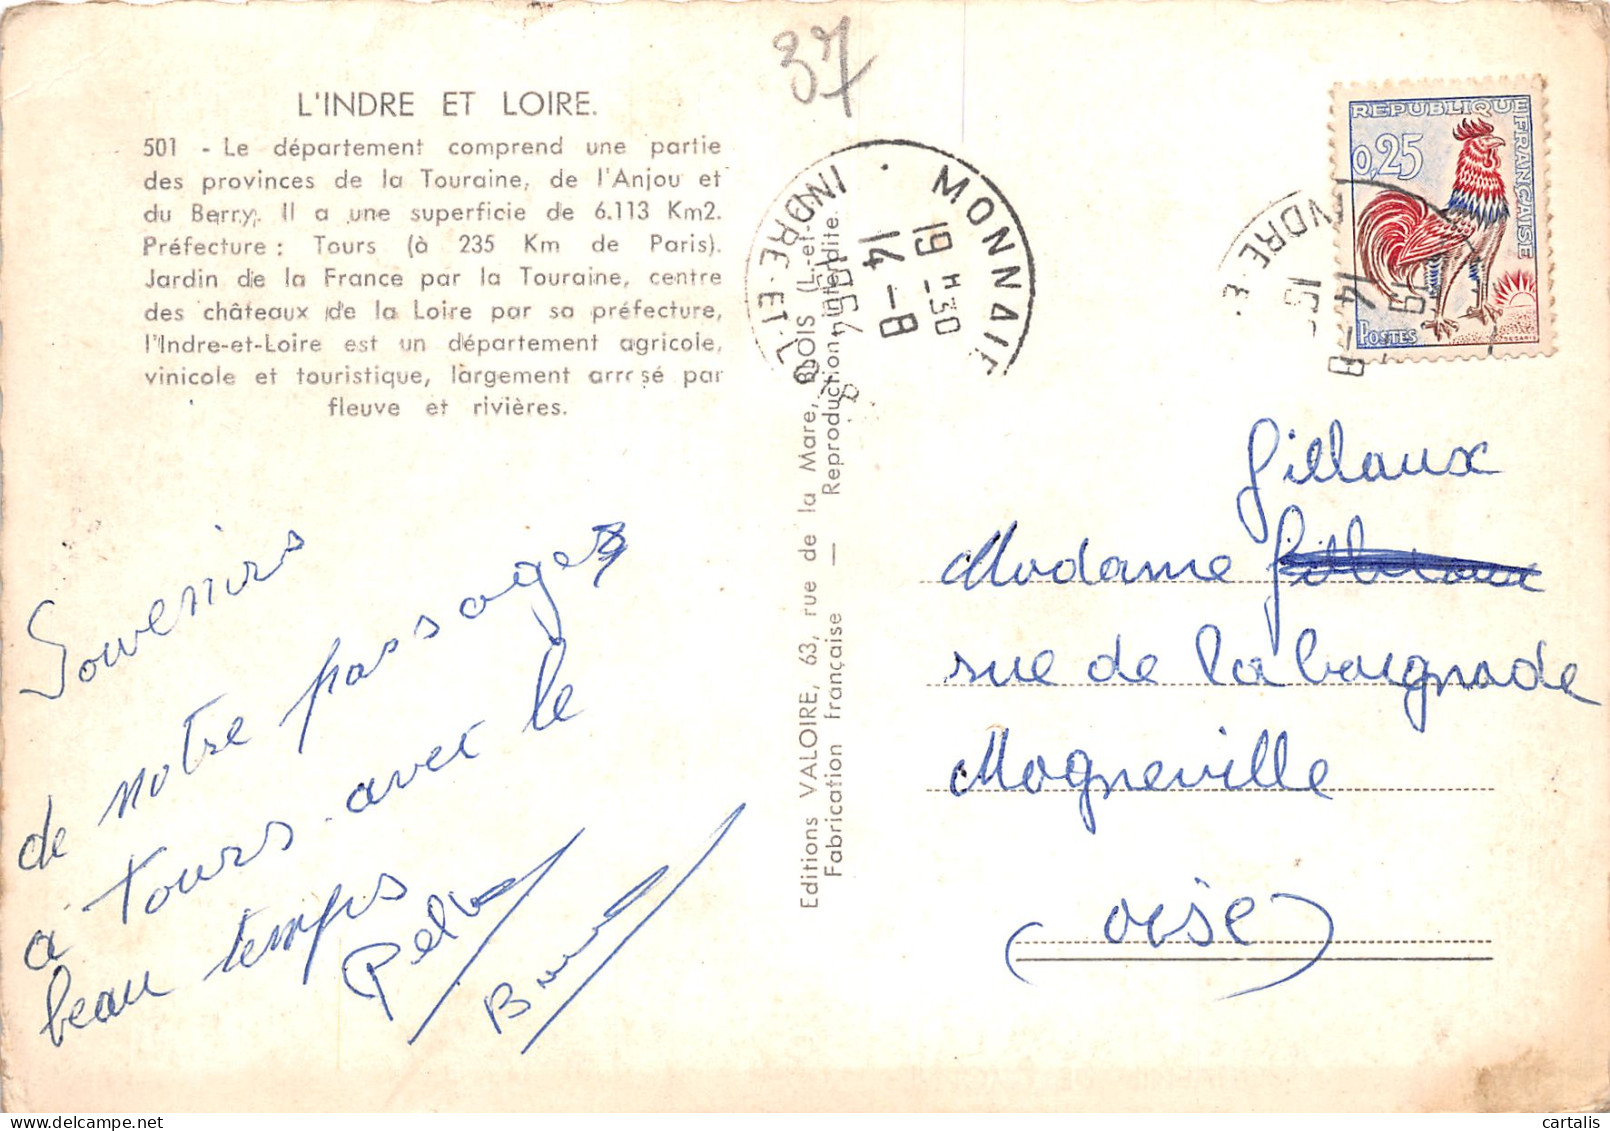 37
L'INDRE ET LOIRE.
501 - Le département comprend une partie
des provinces de la Touraine, de l'Anjou et
du Berry. Il a une superficie de 6.113 Km2.
Préfecture : Tours (à 235 Km de Paris).
Jardin de la France par la Touraine, centre
des châteaux de la Loire par sa préfecture,
l'Indre-et-Loire est un département agricole,
vinicole et touristique, largement arrosé par
fleuve et rivières.
Souvenirs
de notre passage
à Tours avec le
beau temps
Editions VALOIRE, 63, rue de la Mare, BLOIS (L.-et-Ch.)
Fabrication française — Reproduction interdite.
MONNAIE
19 H 30
14 - 8
INDRE-ET-L
REPUBLIQUE FRANÇAISE
0,25
POSTES
INDRE-E
19
14 - 8
Gillaux
Madame
rue de la baignade
Mogneville
(Oise)
cartalis